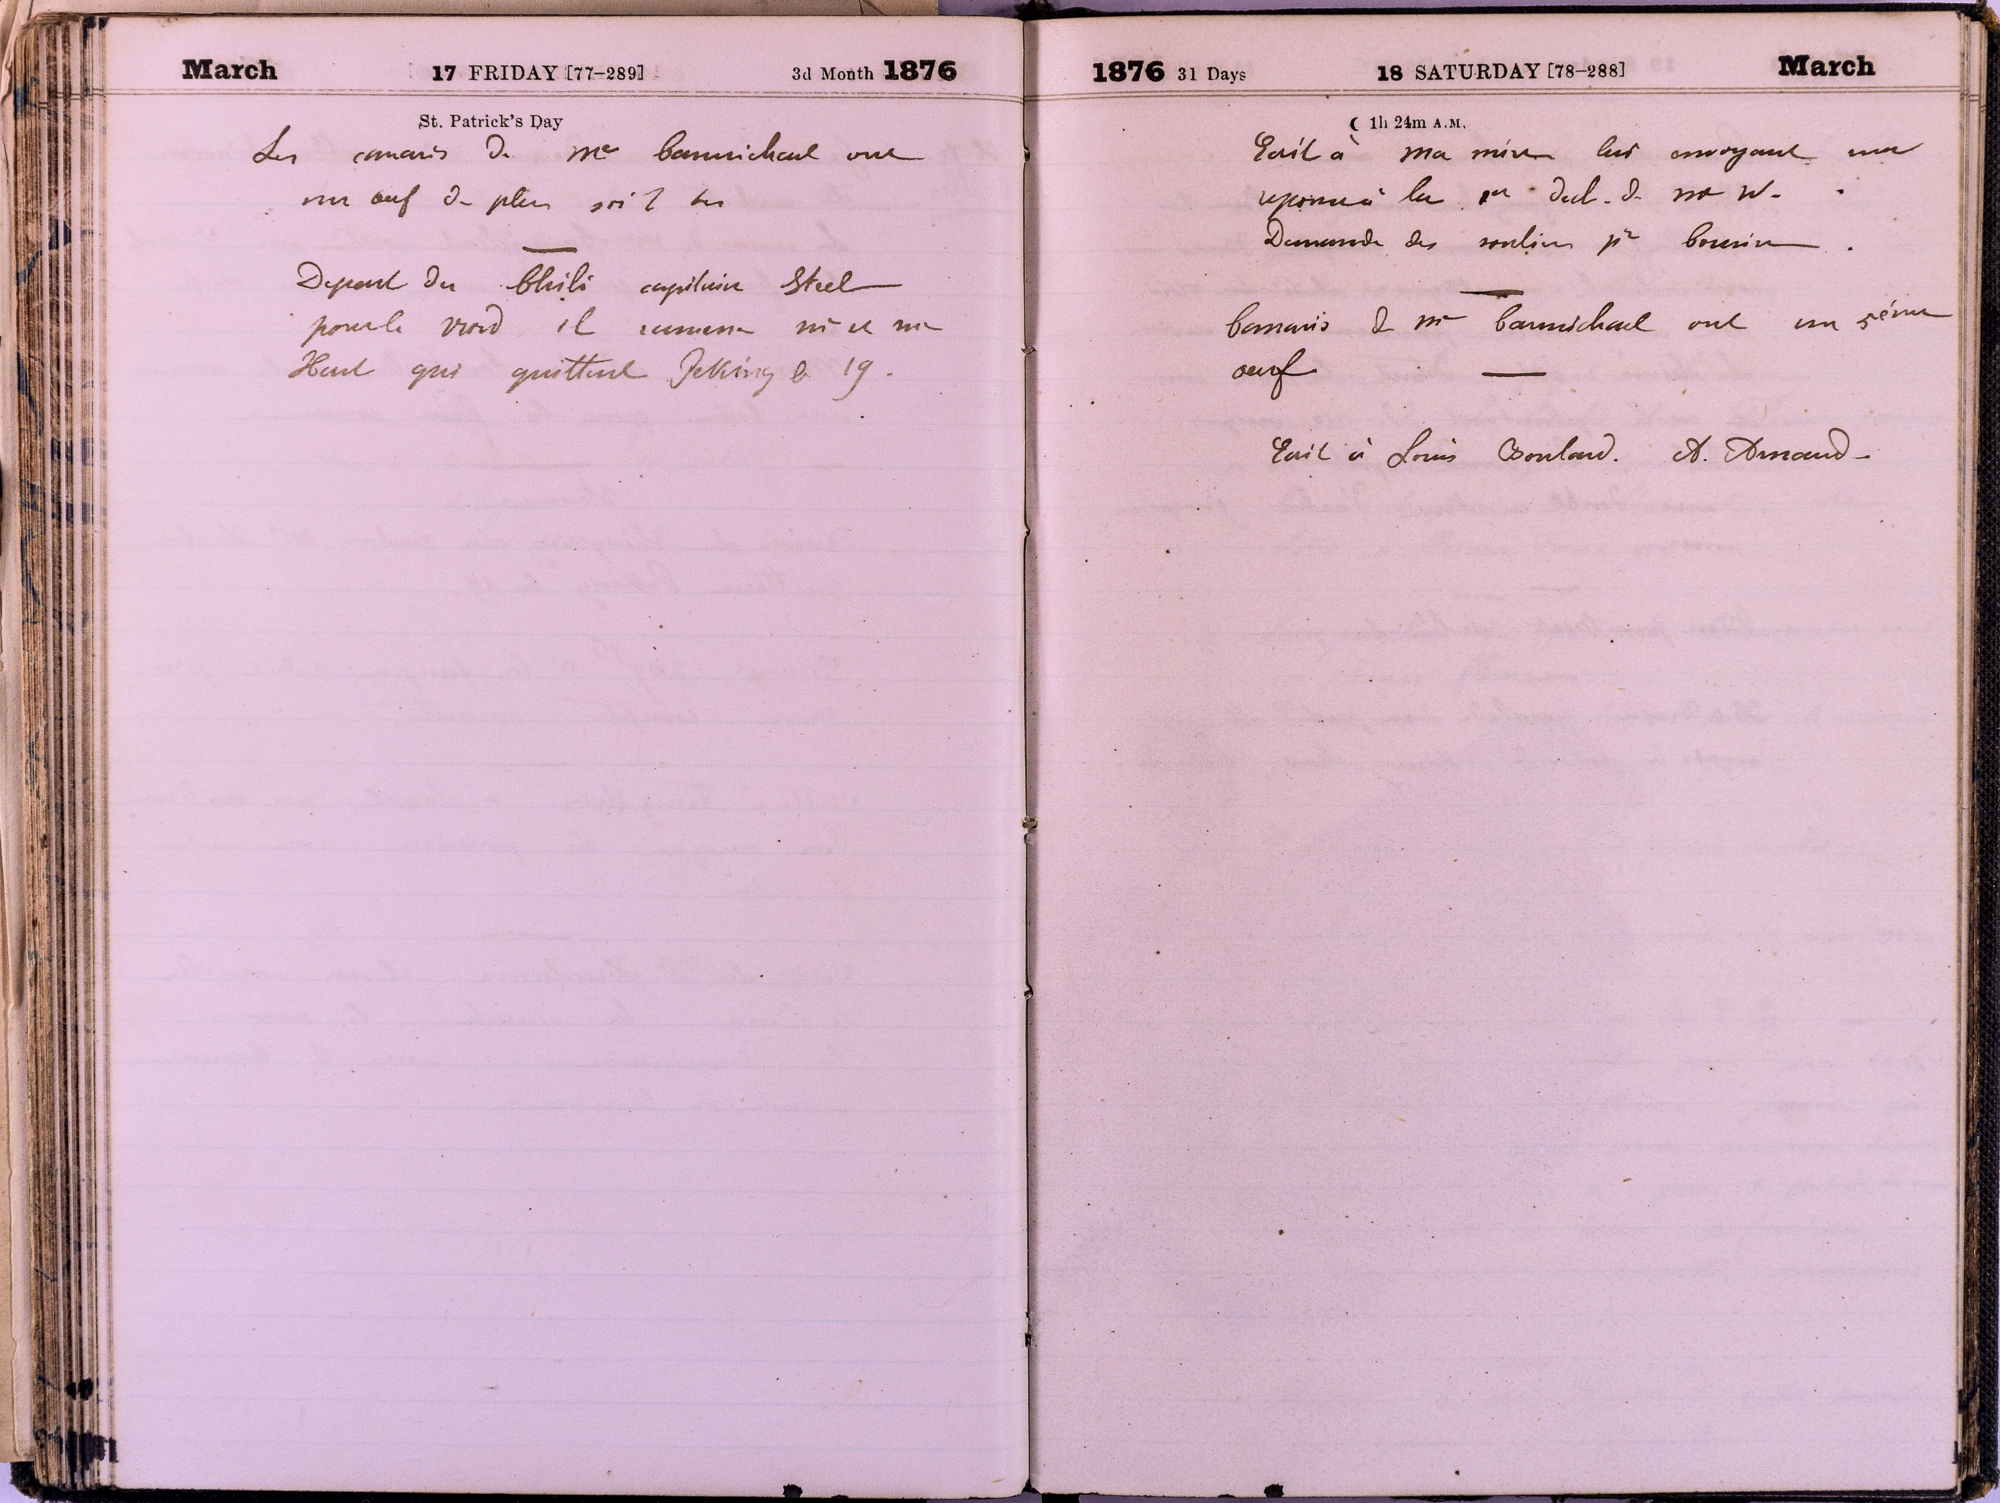 March 17 FRIDAY [77–289] 3d Month 1876
St. Patrick's Day
Les canaris de Me Carmichael ont
un œuf de plus soit
Depart du Chihli capitaine Steel
pour le nord il ramene
Hart qui quittent Peking le 19.
1876 31 Days 18 SATURDAY [78–288] March
☾ 1h 24m A.M.
Ecrit à ma mère lui envoyant une
reponse à la
Demande des souliers pr
Canaris de Me Carmichael ont un 5ème
œuf
Ecrit à Louis Boulard. A. Arnaud